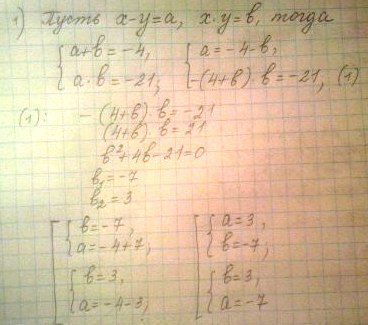 1) Пусть x-y=a, x·y=b, тогда
{ a+b=-4, { a=-4-b,
{ a·b=-21, { -(4+b)·b=-21, (1)
(1): -(4+b)·b=-21
(4+b)·b=21
b²+4b-21=0
b₁=-7
b₂=3
[ { b=-7, [ { a=3,
{ a=-4+7, { b=-7,
{ b=3, { b=3,
{ a=-4-3, { a=-7